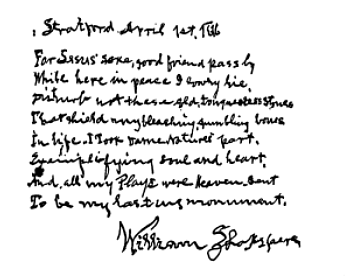 Stratford April 1st,
For Jesus' sake, good friend pass by
While here in peace I lowly lie.
Disturb not these old, tongueless stones
That shield my bleaching, crumbling bones
In life, I took Dame Natures' part,
Exemplifying soul and heart,
And, all my Plays were Heaven Sent
To be my lasting monument.
William Shakspere